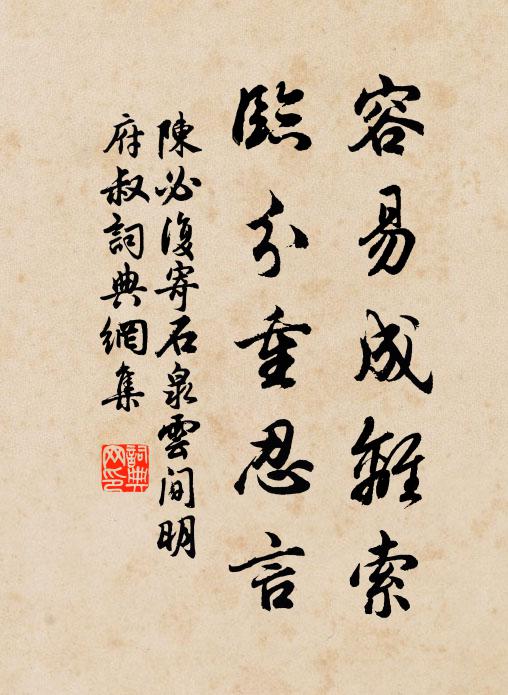 容易成離索
臨分重忍言
陳必復寄石泉雲間明
府叔詞典網集
詞典
网印